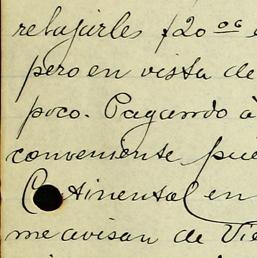 rebajarles $20.00
pero en vista de
poco. Pagando á
conveniente pue
Continental en
me avisan de Vie